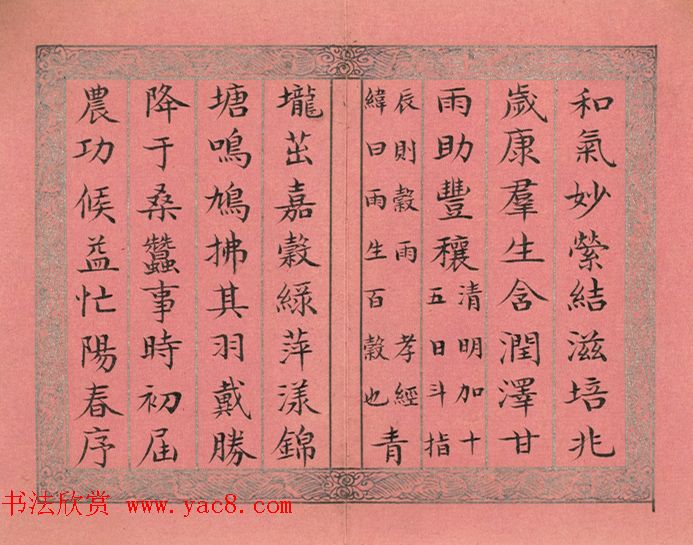 和氣妙縈結滋培兆
歲康羣生含潤澤甘
雨助豐穰
清明加十
五日斗指
辰則穀雨 孝經
緯曰雨生百穀也
青
壠茁嘉穀綠萍漾錦
塘鳴鳩拂其羽戴勝
降于桑蠶事時初届
農功候益忙陽春序
书法欣赏 www.yac8.com